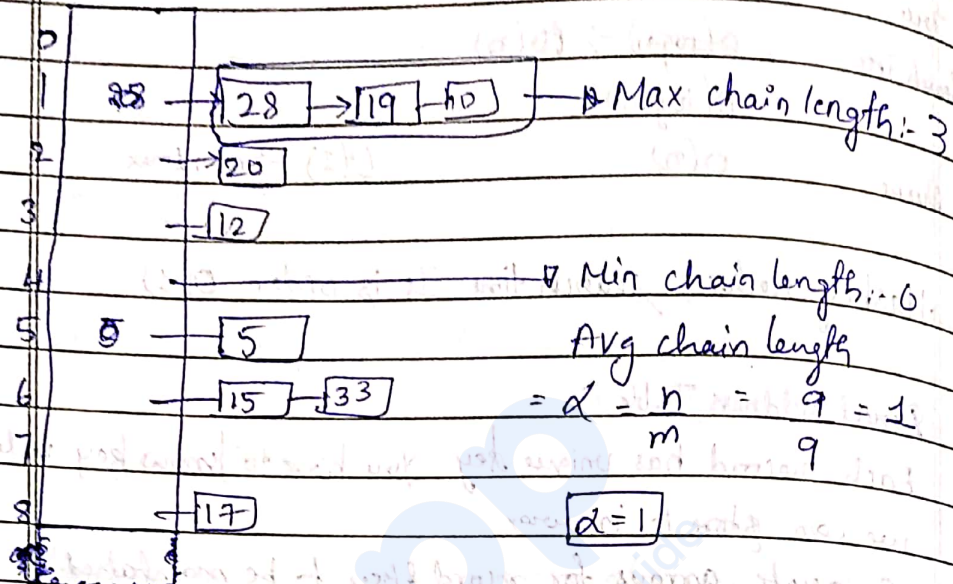 0
1 28 28 19 10 Max chain length:- 3
2 20
3 12
4 Min chain length:- 0
5 5 5 Avg chain length
6 15 33 = α = n/m = 9/9 = 1.
7
8 17 α = 1